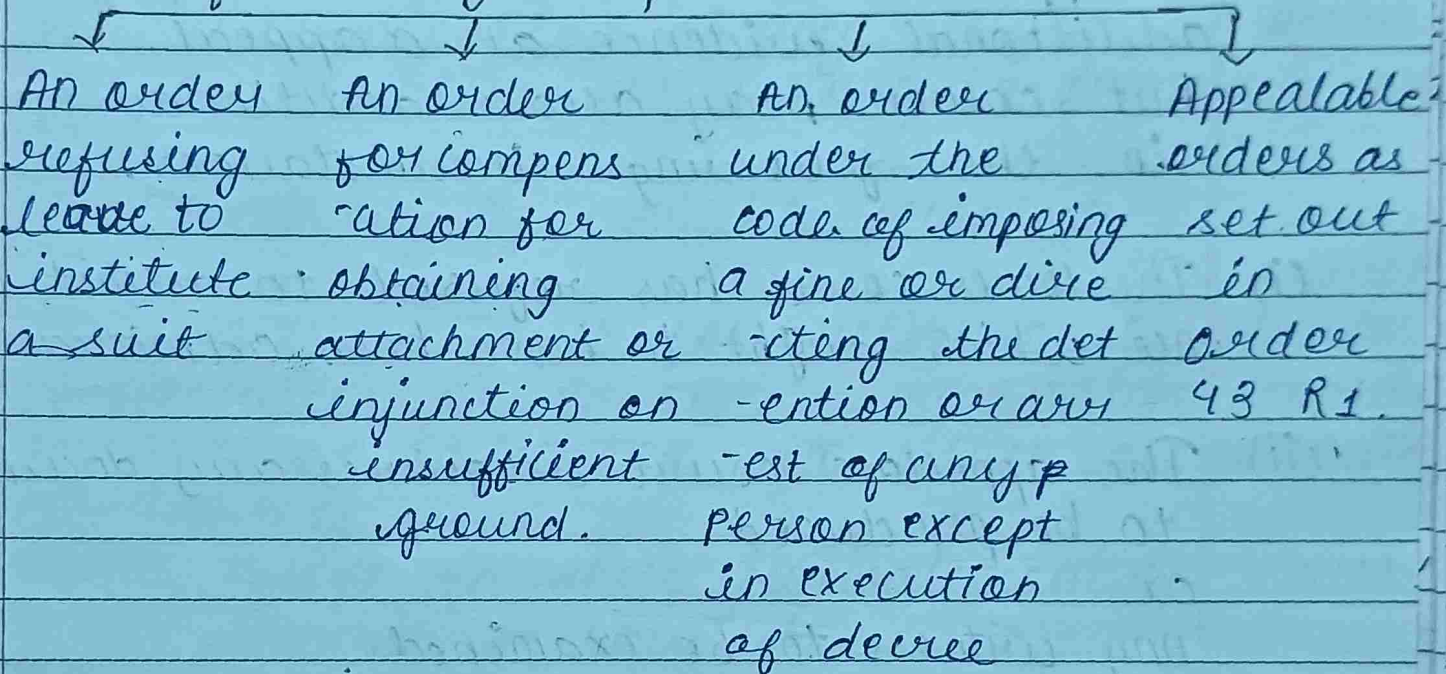 An order
refusing
leave to
institute
a suit
An order
for compens
-ation for
obtaining
attachment or
injunction on
insufficient
ground.
An order
under the
code of imposing
a fine or dire
-cting the det
-ention or arr
-est of any p
person except
in execution
of decree
Appealable
orders as
set out
in
order
43 R1.